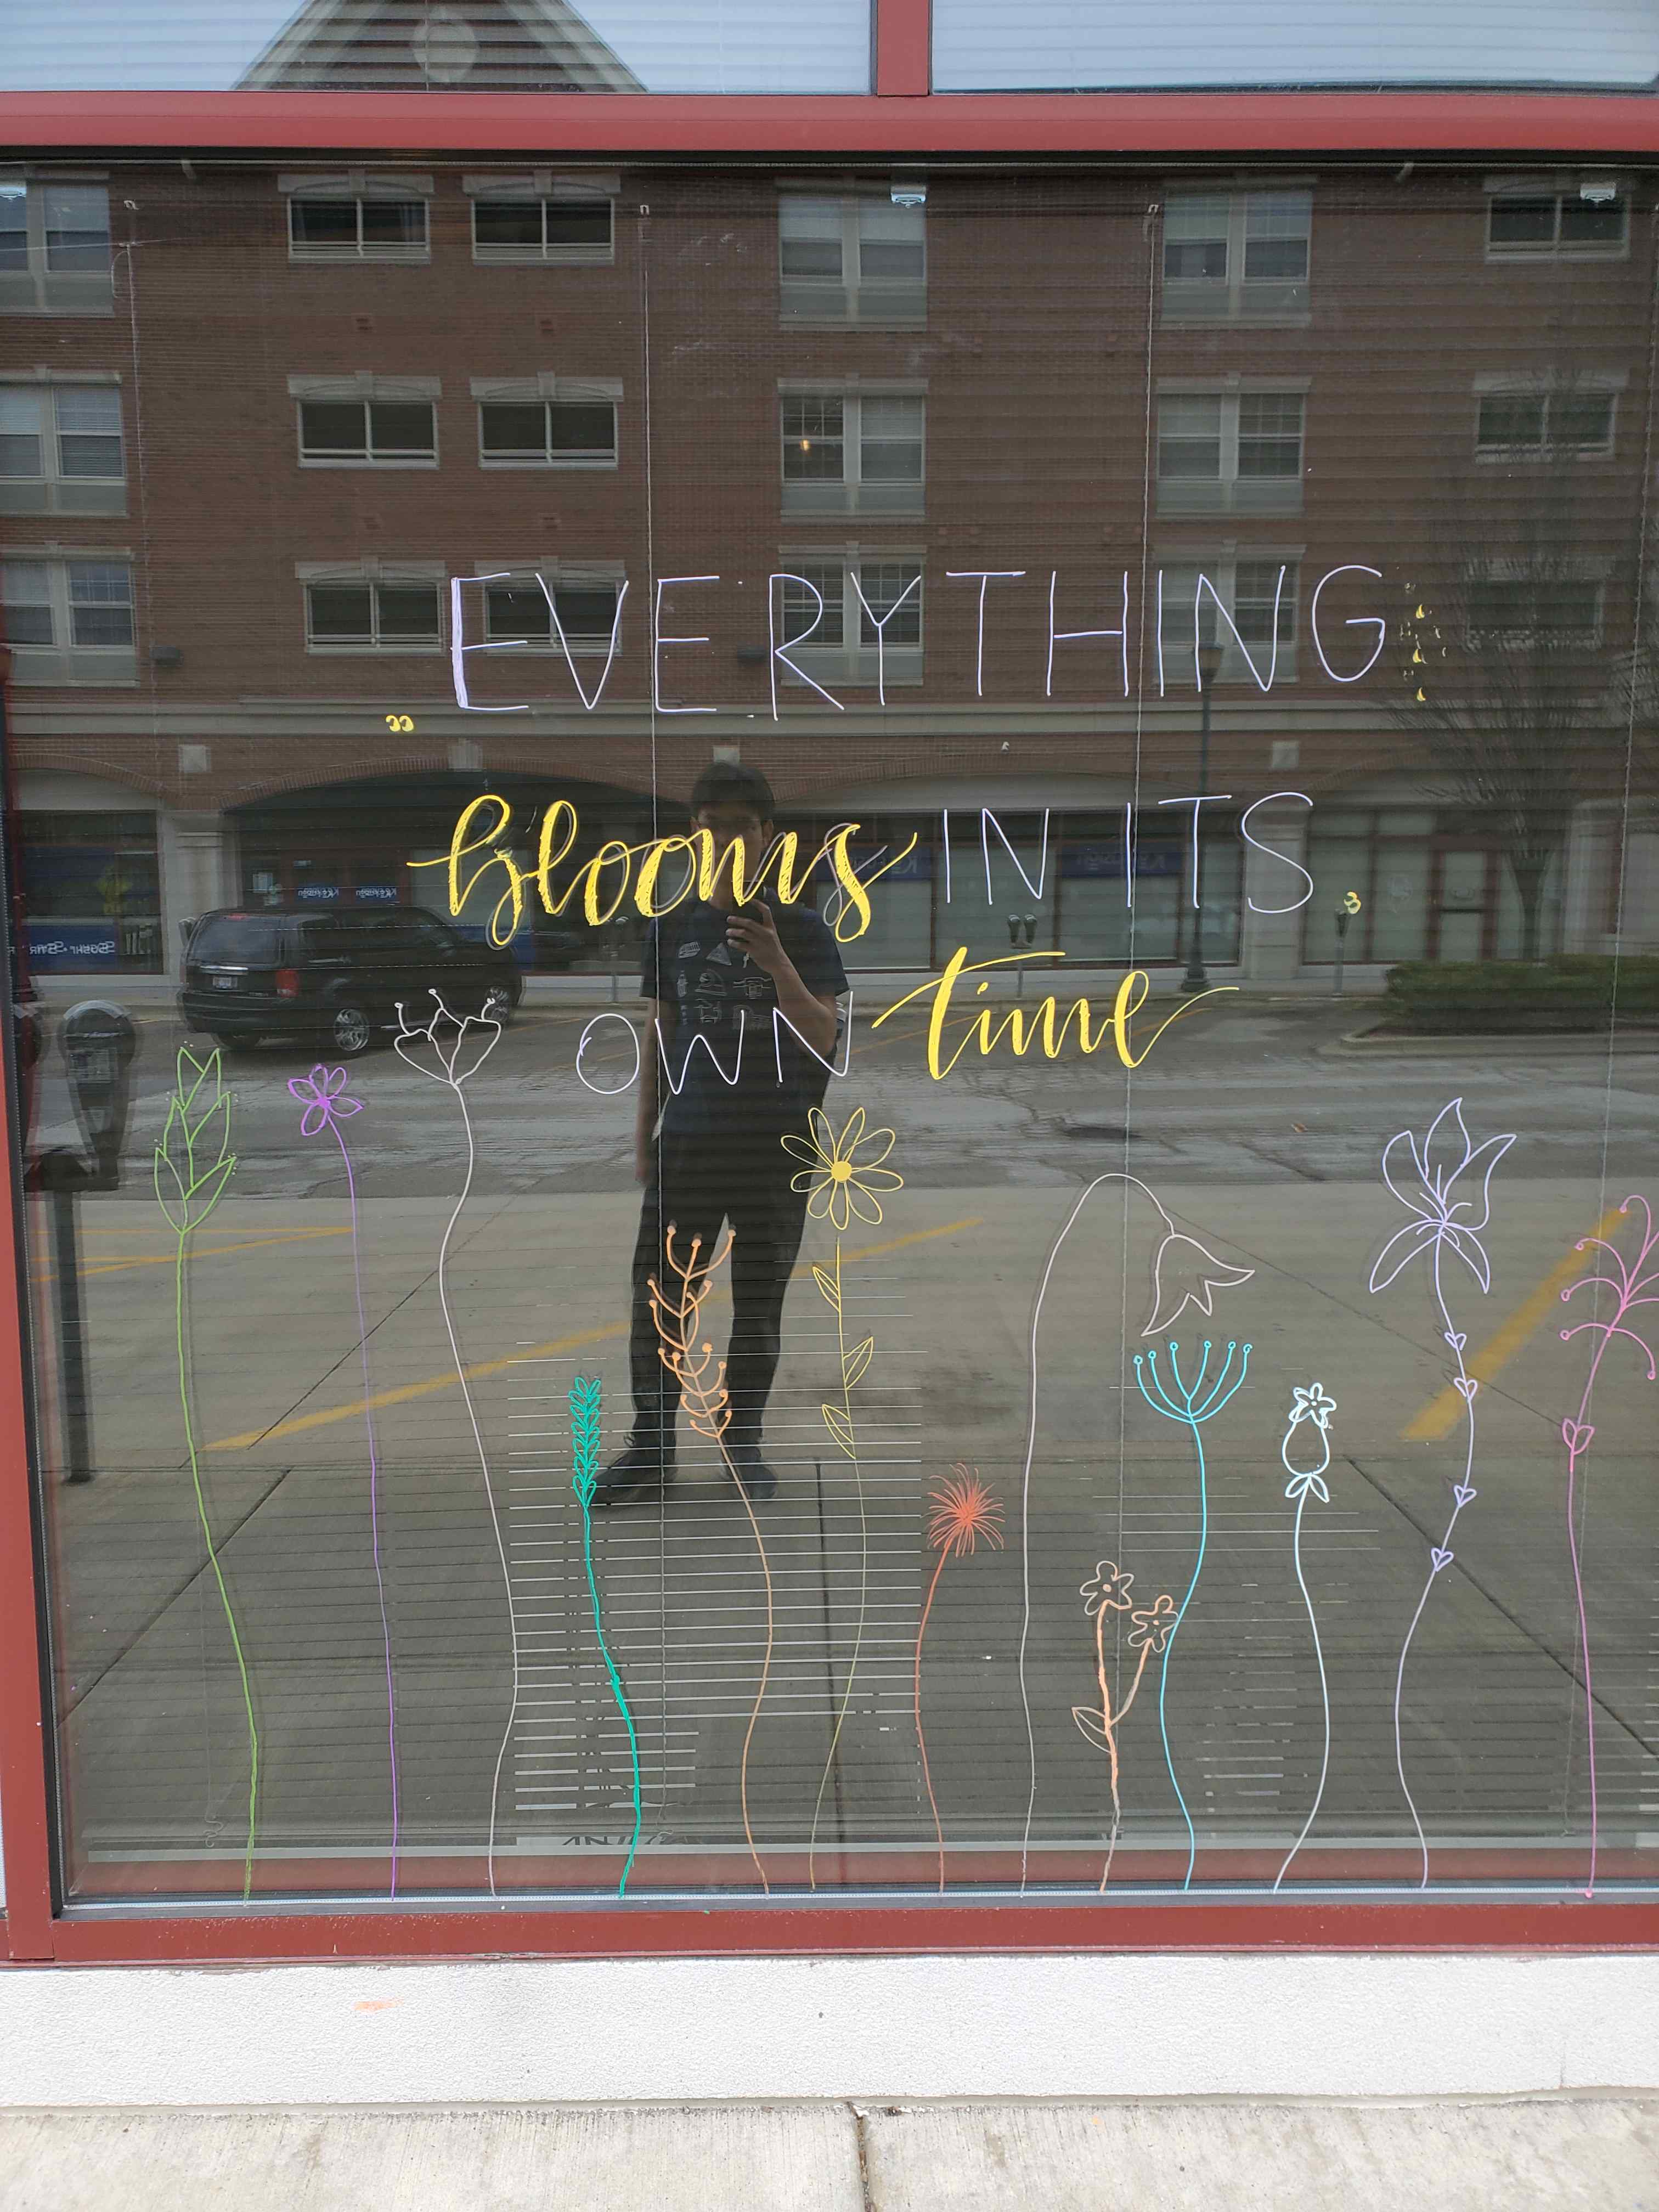 EVERYTHING
blooms IN ITS
OWN time